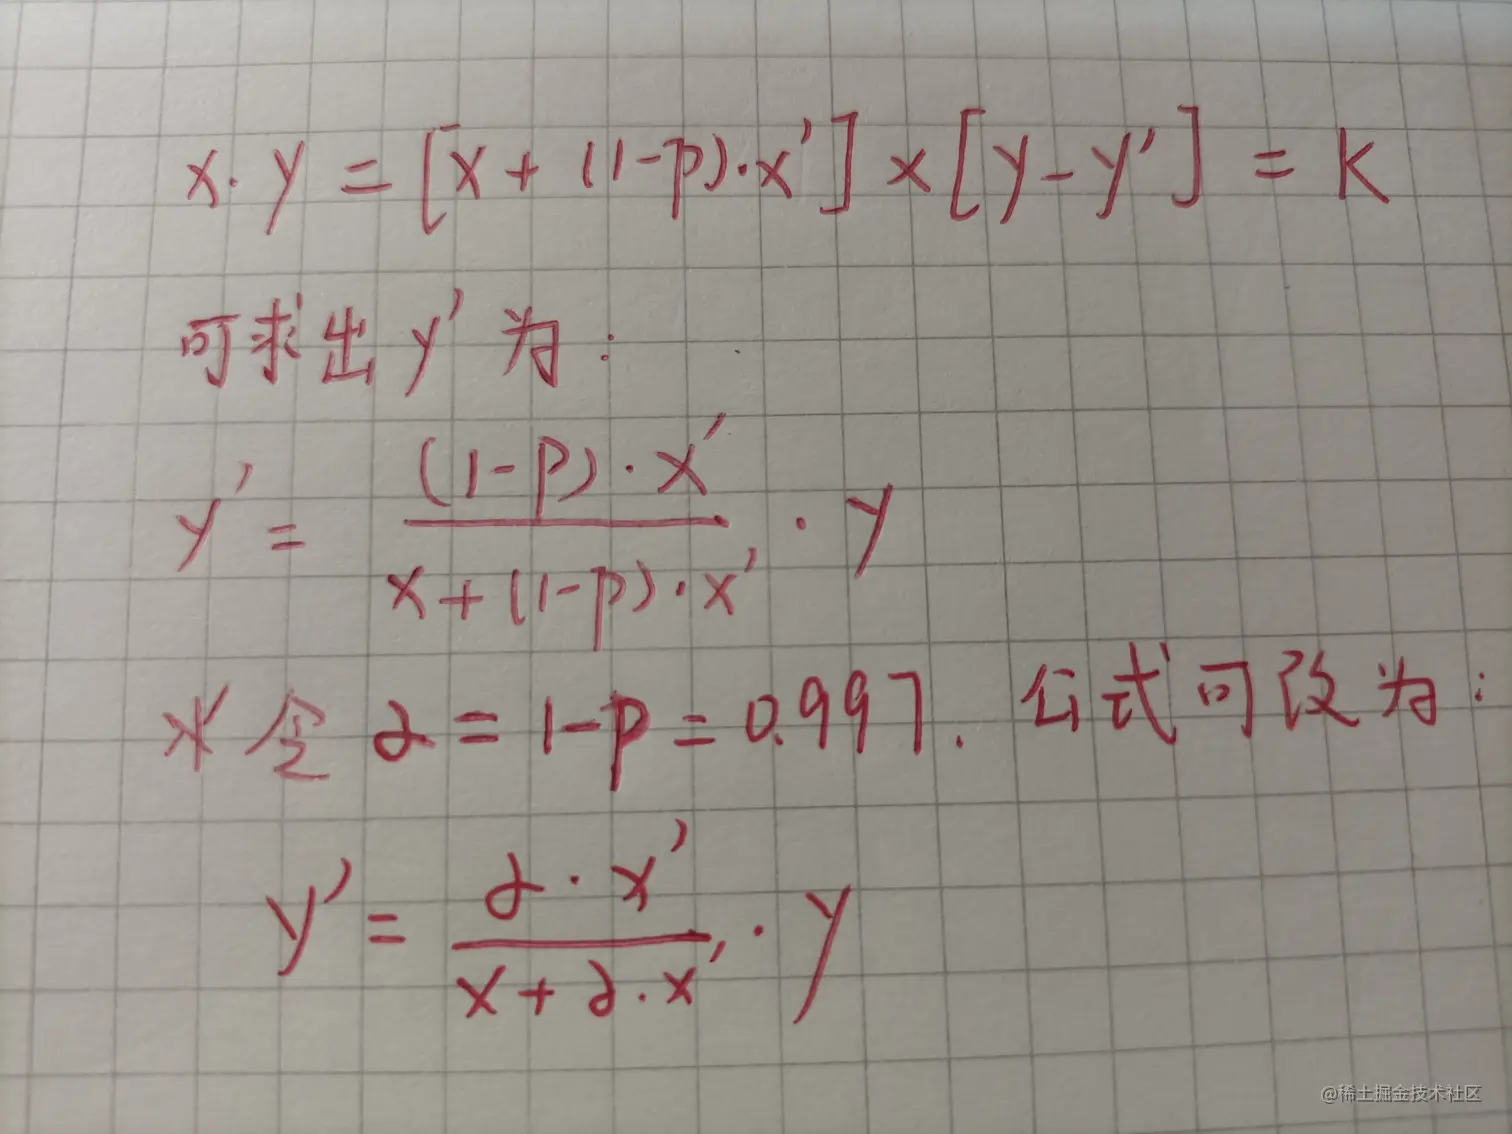 x · y = [x + (1-p)·x'] × [y - y'] = K
可求出 y' 为:
y' = \frac{(1-p)·x'}{x+(1-p)·x'} · y
※ 令 α = 1-p = 0.997. 公式可改为:
y' = \frac{α·x'}{x+α·x'} · y
@稀土掘金技术社区